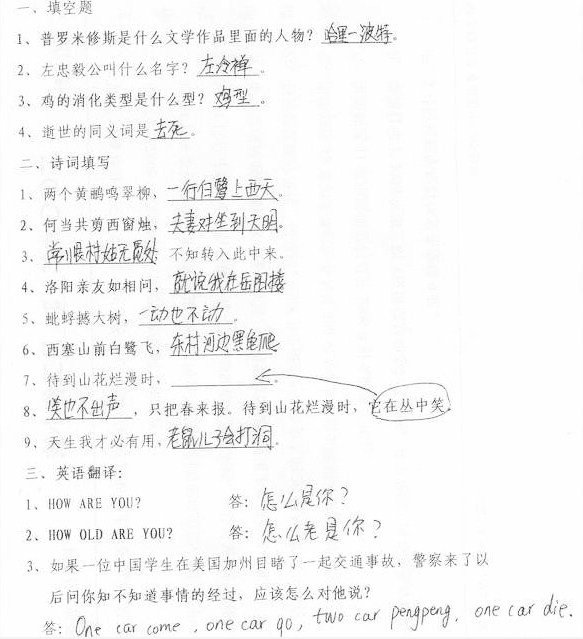 一、填空题
1、普罗米修斯是什么文学作品里面的人物？哈里—波特。
2、左忠毅公叫什么名字？左冷禅。
3、鸡的消化类型是什么型？鸡型。
4、逝世的同义词是去死。
二、诗词填写
1、两个黄鹂鸣翠柳，一行白鹭上西天。
2、何当共剪西窗烛，夫妻对坐到天明。
3、常恨村姑无觅处 不知转入此中来。
4、洛阳亲友如相问，就说我在岳阳楼
5、蚍蜉撼大树，一动也不动。
6、西塞山前白鹭飞，东村河边黑龟爬
7、待到山花烂漫时，。
8、唉也不出声，只把春来报。待到山花烂漫时，它在丛中笑。
9、天生我才必有用，老鼠儿子会打洞。
三、英语翻译：
1、HOW ARE YOU? 答：怎么是你？
2、HOW OLD ARE YOU? 答：怎么老是你？
3、如果一位中国学生在美国加州目睹了一起交通事故，警察来了以
后问你知不知道事情的经过，应该怎么对他说？
答：One car come, one car go, two car pengpeng, one car die.